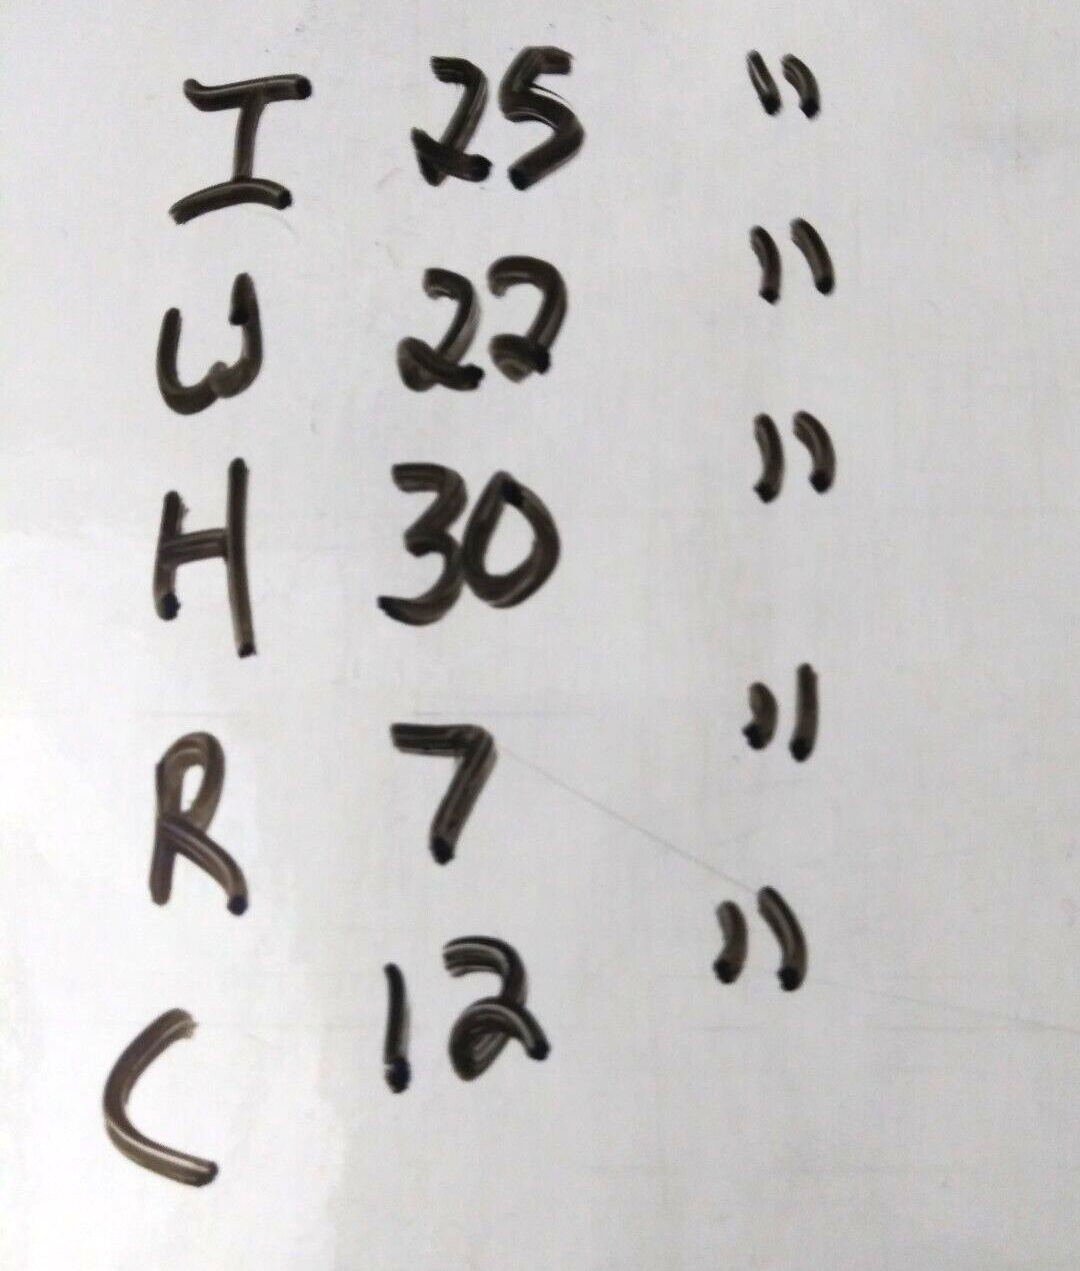 I 25 "
W 22 "
H 30 "
R 7 "
C 12 "